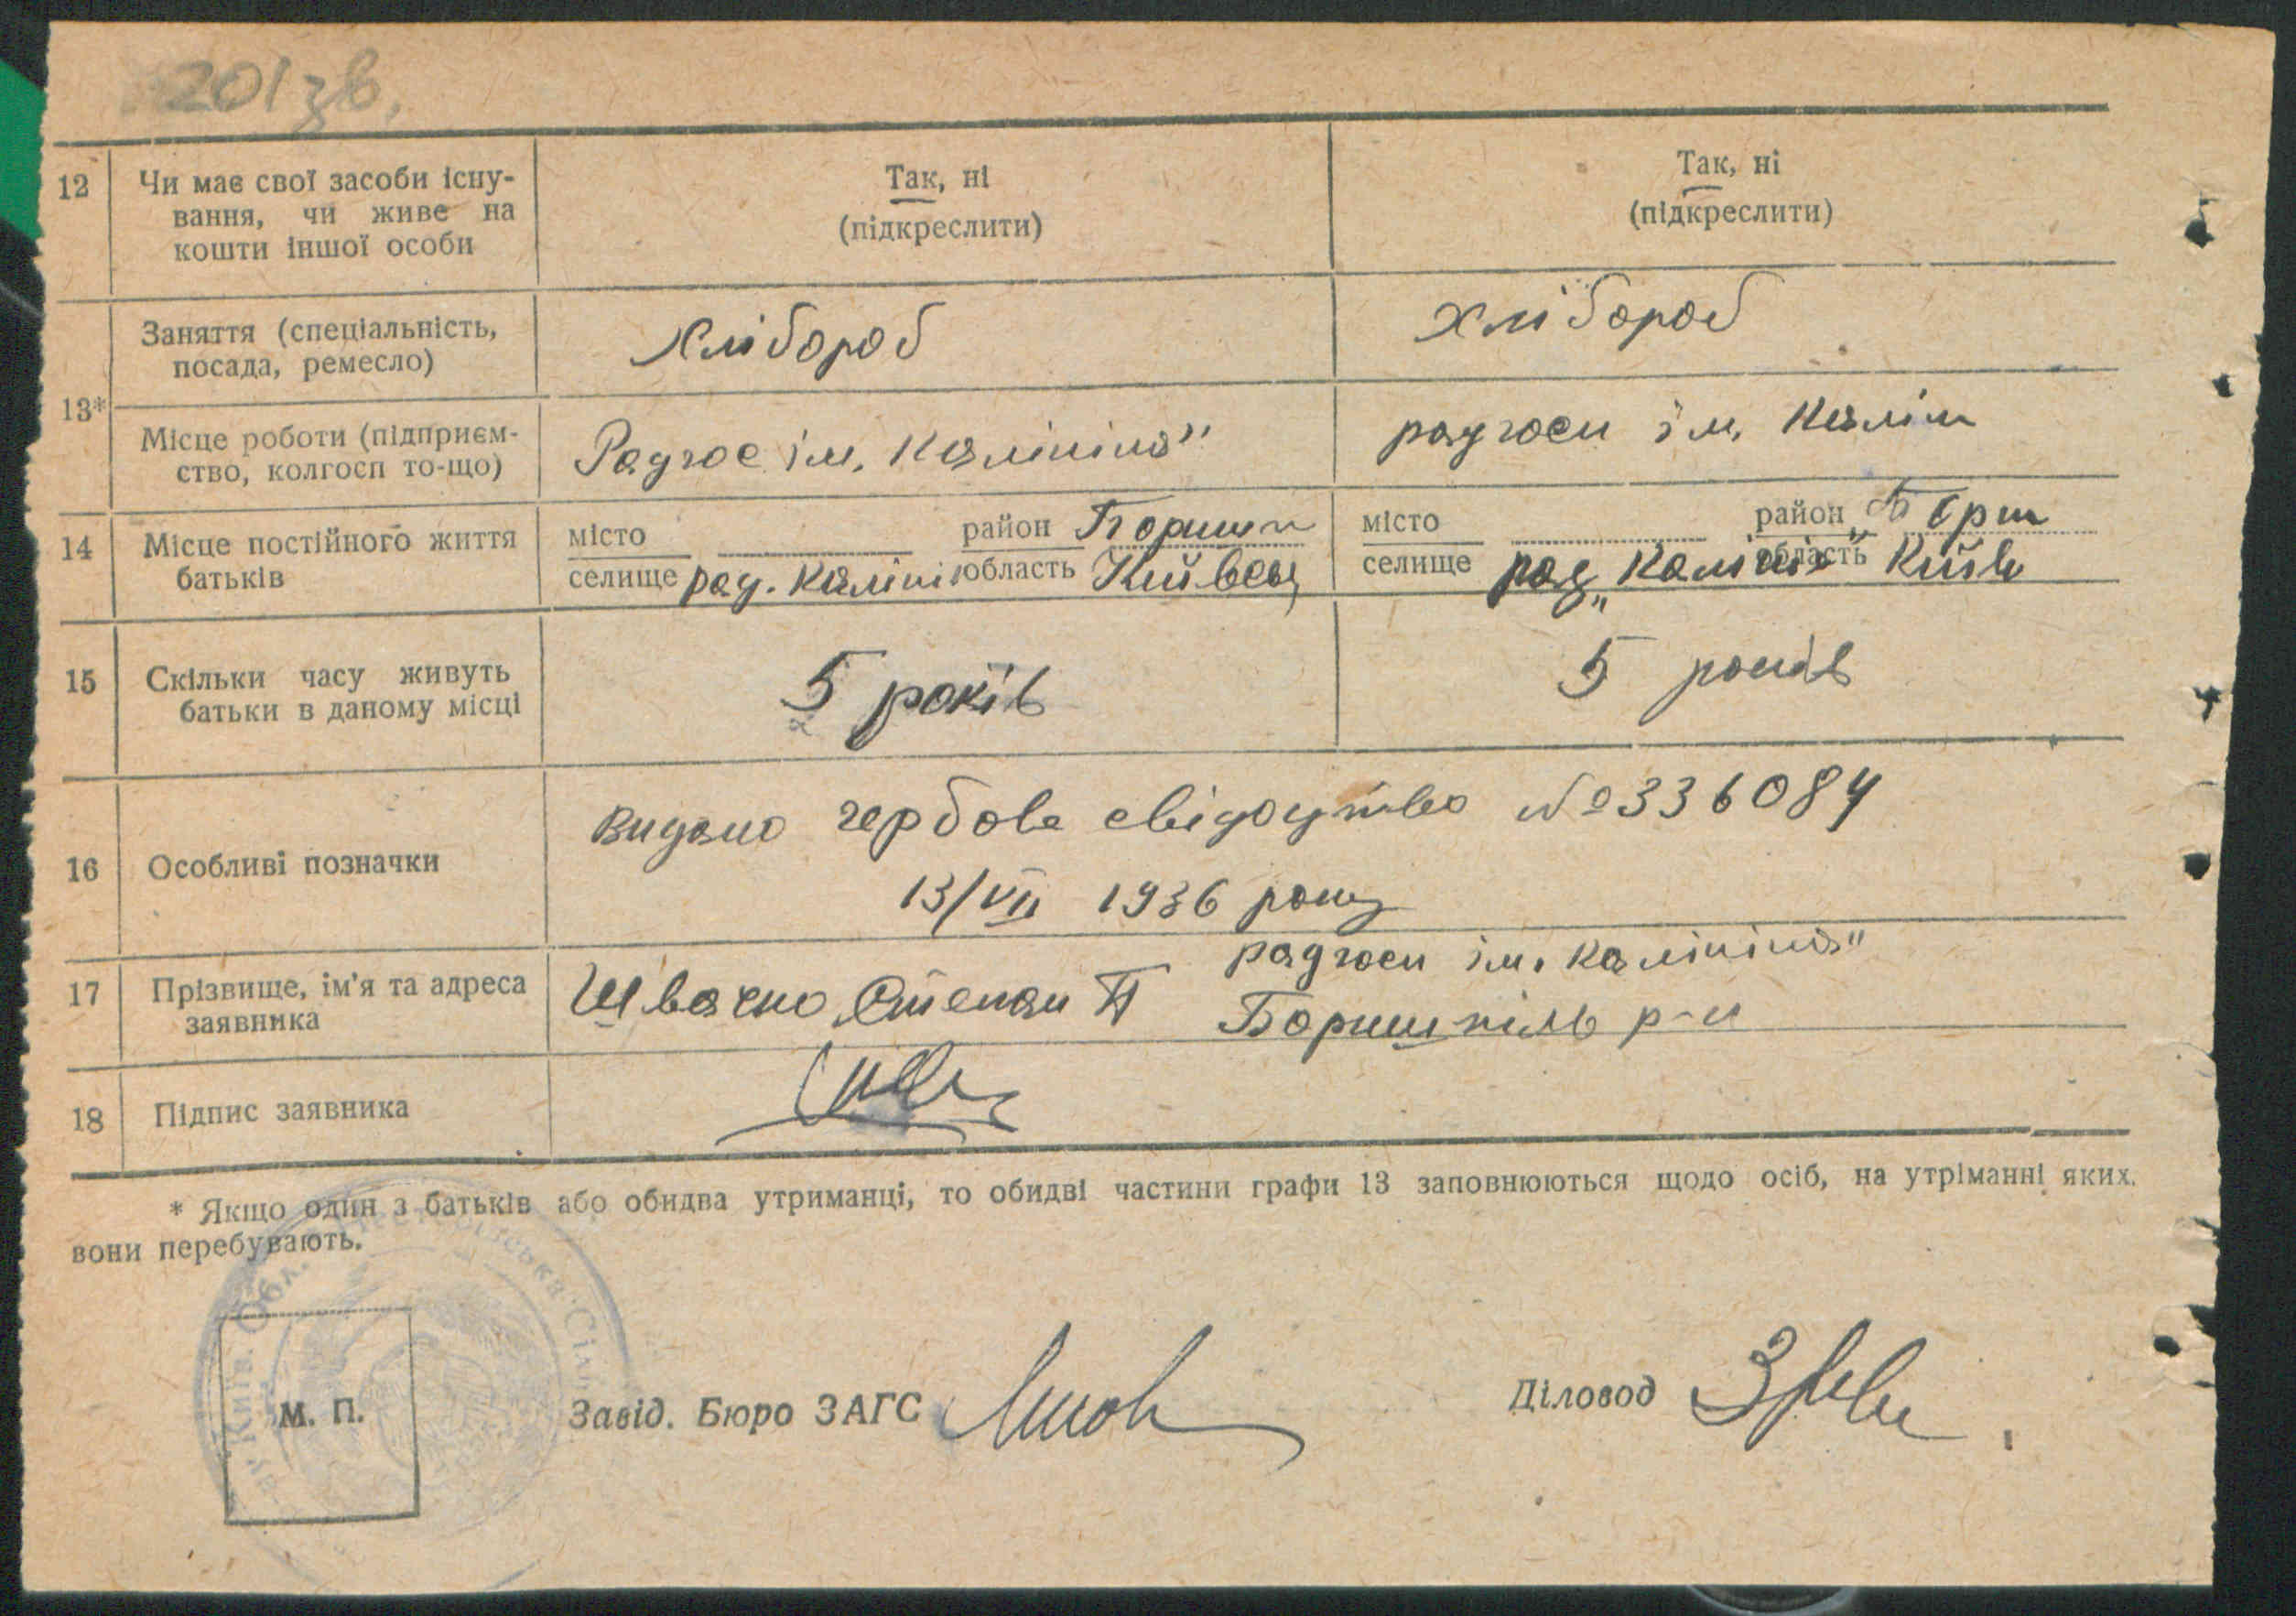 201 зв.
12 Чи має свої засоби існу-
вання, чи живе на
кошти іншої особи
Так, ні
(підкреслити)
Так, ні
(підкреслити)
13*
Заняття (спеціальність,
посада, ремесло)
Хлібороб
Хлібороб
Місце роботи (підприєм-
ство, колгосп то-що)
Радгос ім. Калініна"
радгосп ім. Калін
14 Місце постійного життя
батьків
місто район Боришп
селище рад. Калінін область Київськ
місто район Борш
селище рад. „Калінін" область Київ
15 Скільки часу живуть
батьки в даному місці
5 років
5 років
16 Особливі позначки
видано гербове свідоцтво №336084
13/VII 1936 року
17 Прізвище, ім'я та адреса
заявника
Швачко Степан П
радгосп ім. Калініна"
Боришпіль р-н
18 Підпис заявника
* Якщо один з батьків або обидва утриманці, то обидві частини графи 13 заповнюються щодо осіб, на утріманні яких
вони перебувають.
Київ. Обл.
М. П.
Завід. Бюро ЗАГС
Діловод